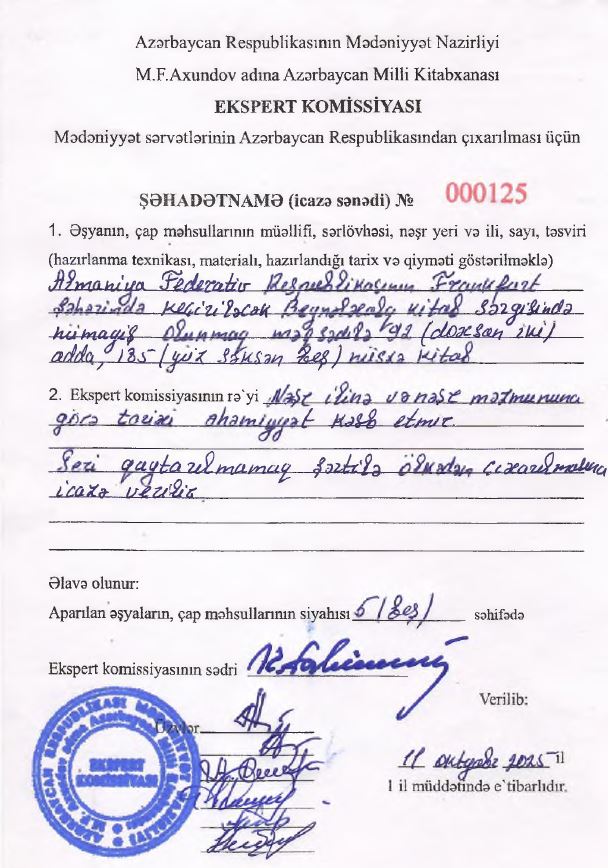 Azərbaycan Respublikasının Mədəniyyət Nazirliyi
M.F.Axundov adına Azərbaycan Milli Kitabxanası
EKSPERT KOMİSSİYASI
Mədəniyyət sərvətlərinin Azərbaycan Respublikasından çıxarılması üçün
ŞƏHADƏTNAMƏ (icazə sənədi) № 000125
1. Əşyanın, çap məhsullarının müəllifi, sərlövhəsi, nəşr yeri və ili, sayı, təsviri
(hazırlanma texnikası, materialı, hazırlandığı tarix və qiyməti göstərilməklə)
Almaniya Federativ Respublikasının Frankfurt
şəhərində keçiriləcək Beynəlxalq kitab sərgisində
nümayiş olunmaq məqsədilə 92 (doxsan iki)
adda, 185 (yüz səksən beş) nüsxə kitab
2. Ekspert komissiyasının rə`yi Nəşr ilinə və nəşr məzmununa
görə tarixi əhəmiyyət kəsb etmir.
Geri qaytarılmamaq şərtilə ölkədən çıxarılmasına
icazə verilir
Əlavə olunur:
Aparılan əşyaların, çap məhsullarının siyahısı 5 (beş) səhifədə
Ekspert komissiyasının sədri
Verilib:
Üzvlər
11 oktyabr 2025 il
1 il müddətində e`tibarlıdır.
AZƏRBAYCAN RESPUBLİKASI MƏDƏNİYYƏT NAZİRLİYİ
EKSPERT
KOMİSSİYASI